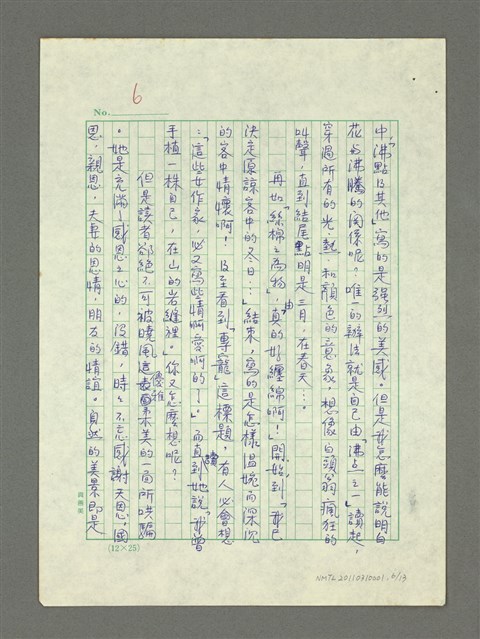 No. 6
中,「沸點及其他」寫的是強烈的美感。但是我怎麼能說明白
花的沸騰的關係呢?唯一的辦法就是自己由「沸点之一」讀起,
穿過所有的光、熱、和顏色的意義,想像白頭翁瘋狂的
叫聲,直到結尾點明是三月,在春天…。
再如「絲棉之為物」,真的好纏綿啊!由開始到「我已
決定原諒客中的冬日…」結束,寫的是怎樣溫婉而深沉
的客中情懷啊!及至看到「專寵」這標題,有人必會想
:「這些女作家,必又寫些情啊愛啊的了」。而直到讀她說「我曾
手植一株自己,在山的岩縫裡。」你又怎麼想呢?
但是讀者卻絕不可被曉風這優雅柔美的一面所哄騙
。她是充滿了感恩之心的,沒錯,時々不忘感謝天恩,國
恩,親恩,夫妻的恩情,朋友的情誼。自然的美景即是
(12×25)
NMTL20110310001 6/13